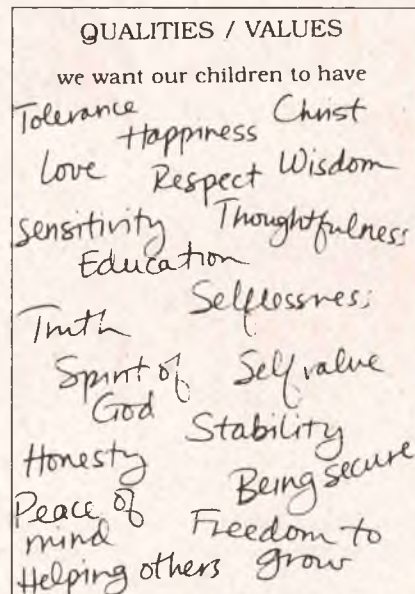 QUALITIES / VALUES
we want our children to have
Tolerance
Christ
Happiness
Love
Respect
Wisdom
Sensitivity
Thoughtfulness
Education
Selflessness
Truth
Spirit of
God
Self value
Stability
Honesty
Being secure
Peace of
mind
Freedom to
grow
Helping others